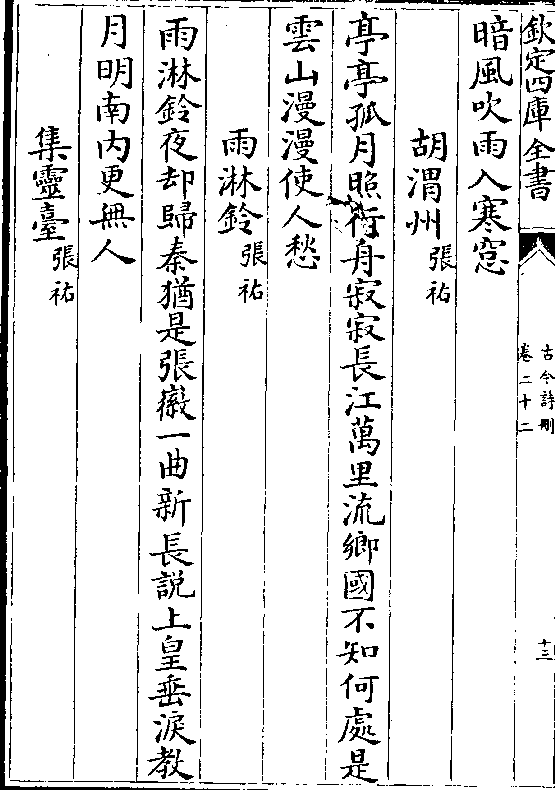 欽定四庫全書
古今詩刪
卷二十二
十三
暗風吹雨入寒窓
胡渭州張祜
亭亭孤月照行舟寂寂長江萬里流鄉國不知何處是
雲山漫漫使人愁
雨淋鈴張祜
雨淋鈴夜却歸秦猶是張徽一曲新長說上皇垂淚教
月明南內更無人
集靈臺張祜